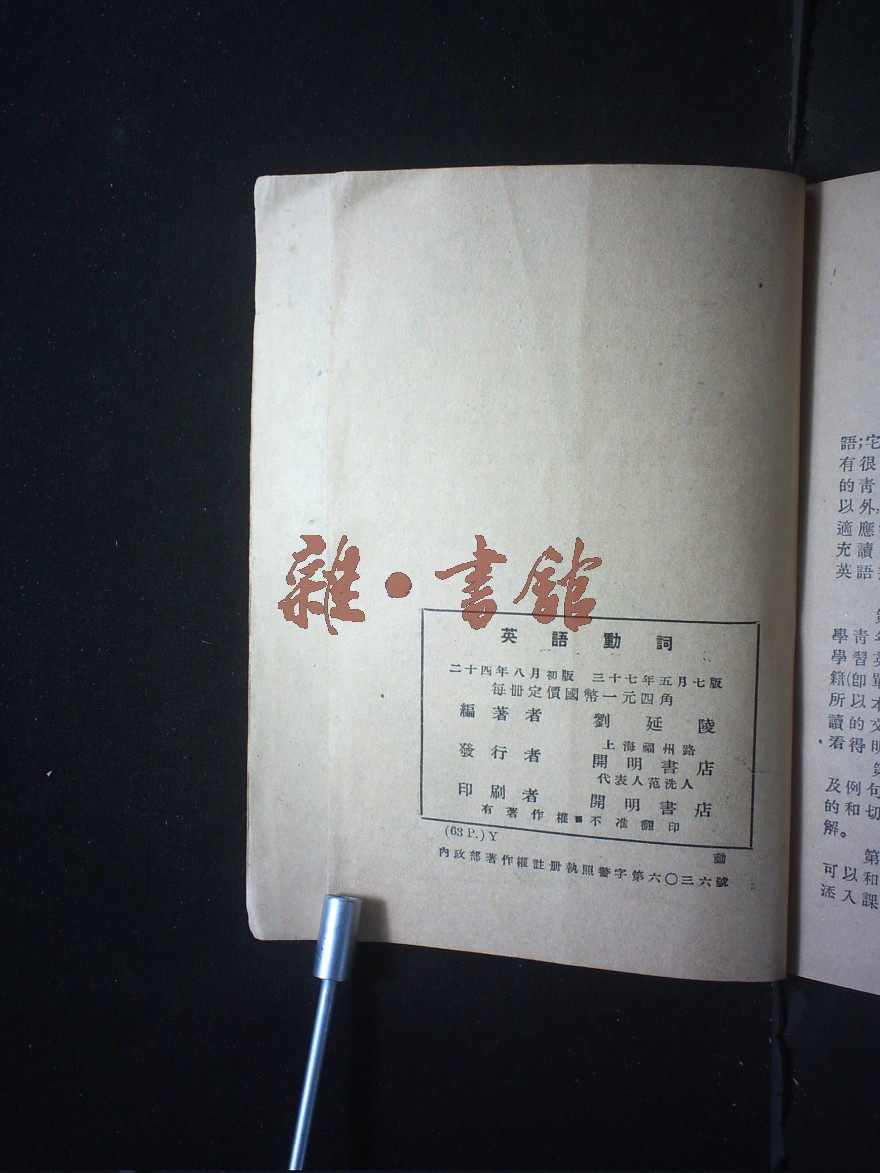 雜·書館
英語動詞
二十四年八月初版 三十七年五月七版
每冊定價國幣一元四角
編著者 劉延陵
發行者 上海福州路
開明書店
代表人范洗人
印刷者 開明書店
有著作權■不准翻印
(63 P.) Y 動
內政部著作權註册執照警字第六〇三六號
語;宅
有很
的靑
以外,
適應
充讀
英語
學靑年
學習英
籍(卽單
所以本
讀的文
看得明
第
及例句
的和切
解。
第
可以和
添入課